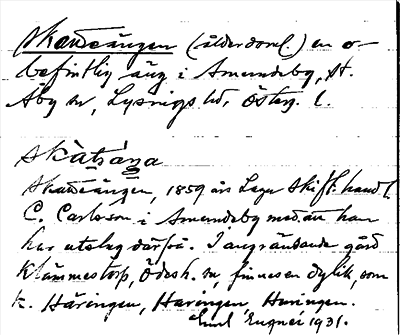 Skateängen (ålderdoml.) en o-
befintlig äng i Amundeby, St.
Åby sn, Lysings hd, Österg. l.
skàtsäŋa
Skateängen, 1859 års Laga Skift. handl.
C. Carlsson i Amundeby medan han
har utslag därpå. I angränsande gård
Klämmestorp, Ödesh. sn, finnes en dylik, som
k. Häringen, Haringen, Huringen.
Emil Eugner 1931.